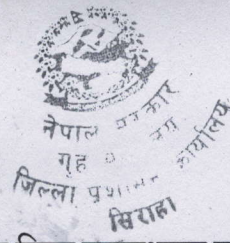 नेपाल सरकार
गृह
जिल्ला प्रशासन कार्यालय
सिराहा